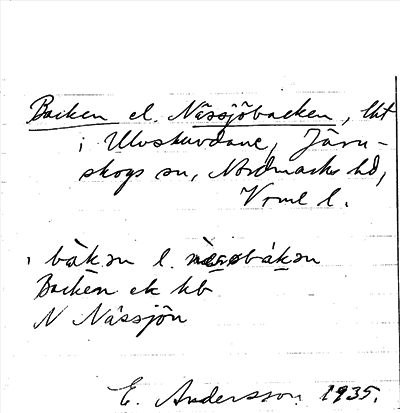 Backen el. Nässjöbacken, lht
i Ulvskuvdane, Järn-
skogs sn, Nordmarks hd,
Vrml l.
bàk.ən l.
Backen ek hb
N Nässjön
E. Andersson 1935.